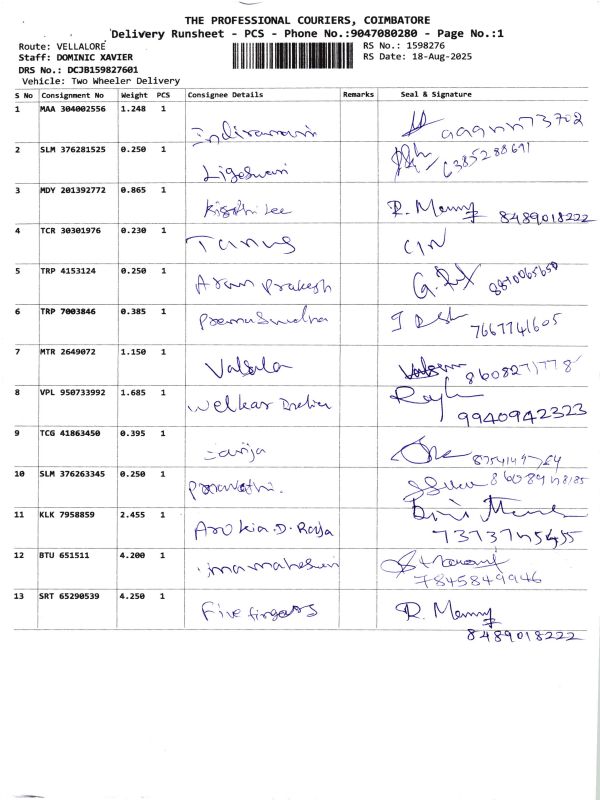 THE PROFESSIONAL COURIERS, COIMBATORE
Delivery Runsheet - PCS - Phone No.:9047080280 - Page No.:1
Route: VELLALORE RS No.: 1598276
Staff: DOMINIC XAVIER RS Date: 18-Aug-2025
DRS No.: DCJB159827601
Vehicle: Two Wheeler Delivery
S No Consignment No Weight PCS Consignee Details Remarks Seal & Signature
1 MAA 304002556 1.248 1
2 SLM 376281525 0.250 1
Ligeswari
3 MDY 201392772 0.865 1
R. Menny 8489018222
4 TCR 30301976 0.230 1
5 TRP 4153124 0.250 1
Arun prakash
6 TRP 7003846 0.385 1
7667741605
7 MTR 2649072 1.150 1
Valsala
8 VPL 950733992 1.685 1
9940942323
9 TCG 41863450 0.395 1
10 SLM 376263345 0.250 1
11 KLK 7958859 2.455 1
Arokia.D. Raja
12 BTU 651511 4.200 1
7845849946
13 SRT 65290539 4.250 1
Five fingers R. Menny
8489018222